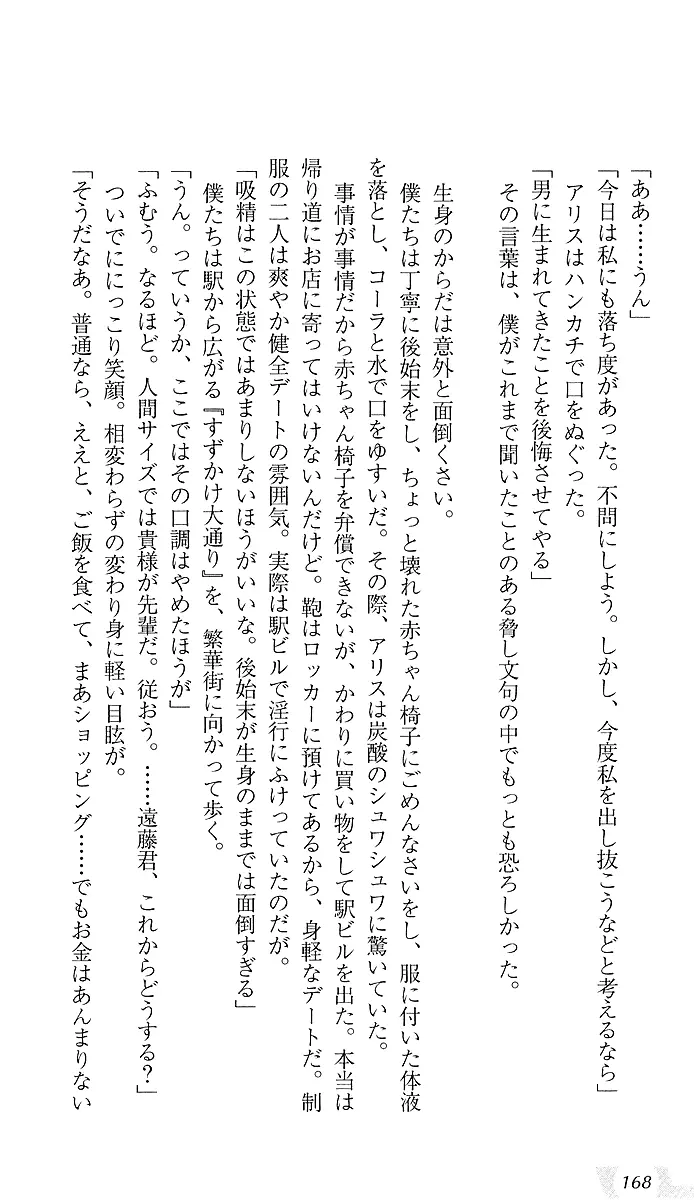 「ああ……うん」
「今日は私にも落ち度があった。不問にしよう。しかし、今度私を出し抜こうなどと考えるなら」
アリスはハンカチで口をぬぐった。
「男に生まれてきたことを後悔させてやる」
その言葉は、僕がこれまで聞いたことのある脅し文句の中でもっとも恐ろしかった。
生身のからだは意外と面倒くさい。
僕たちは丁寧に後始末をし、ちょっと壊れた赤ちゃん椅子にごめんなさいをし、服に付いた体液
を落とし、コーラと水で口をゆすいだ。その際、アリスは炭酸のシュワシュワに驚いていた。
事情が事情だから赤ちゃん椅子を弁償できないが、かわりに買い物をして駅ビルを出た。本当は
帰り道にお店に寄ってはいけないんだけど。鞄はロッカーに預けてあるから、身軽なデートだ。制
服の二人は爽やか健全デートの雰囲気。実際は駅ビルで淫行にふけっていたのだが。
「吸精はこの状態ではあまりしないほうがいいな。後始末が生身のままでは面倒すぎる」
僕たちは駅から広がる『すずかけ大通り』を、繁華街に向かって歩く。
「うん。っていうか、ここではその口調はやめたほうが」
「ふむう。なるほど。人間サイズでは貴様が先輩だ。従おう。……遠藤君、これからどうする?」
ついでににっこり笑顔。相変わらずの変わり身に軽い目眩が。
「そうだなあ。普通なら、ええと、ご飯を食べて、まあショッピング……でもお金はあんまりない
168